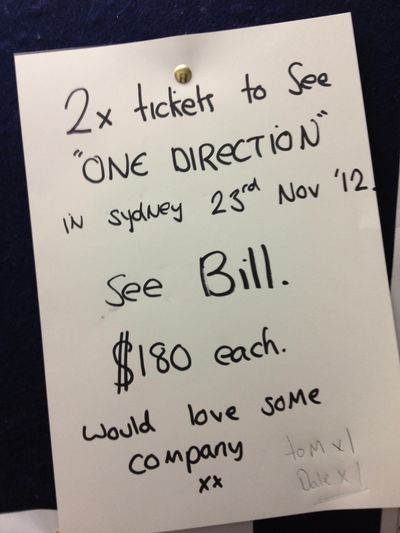 2x tickets to See
"ONE DIRECTION"
in Sydney 23rd Nov '12.
See Bill.
$180 each.
Would love some
company
xx
Tom x1
Dale x1